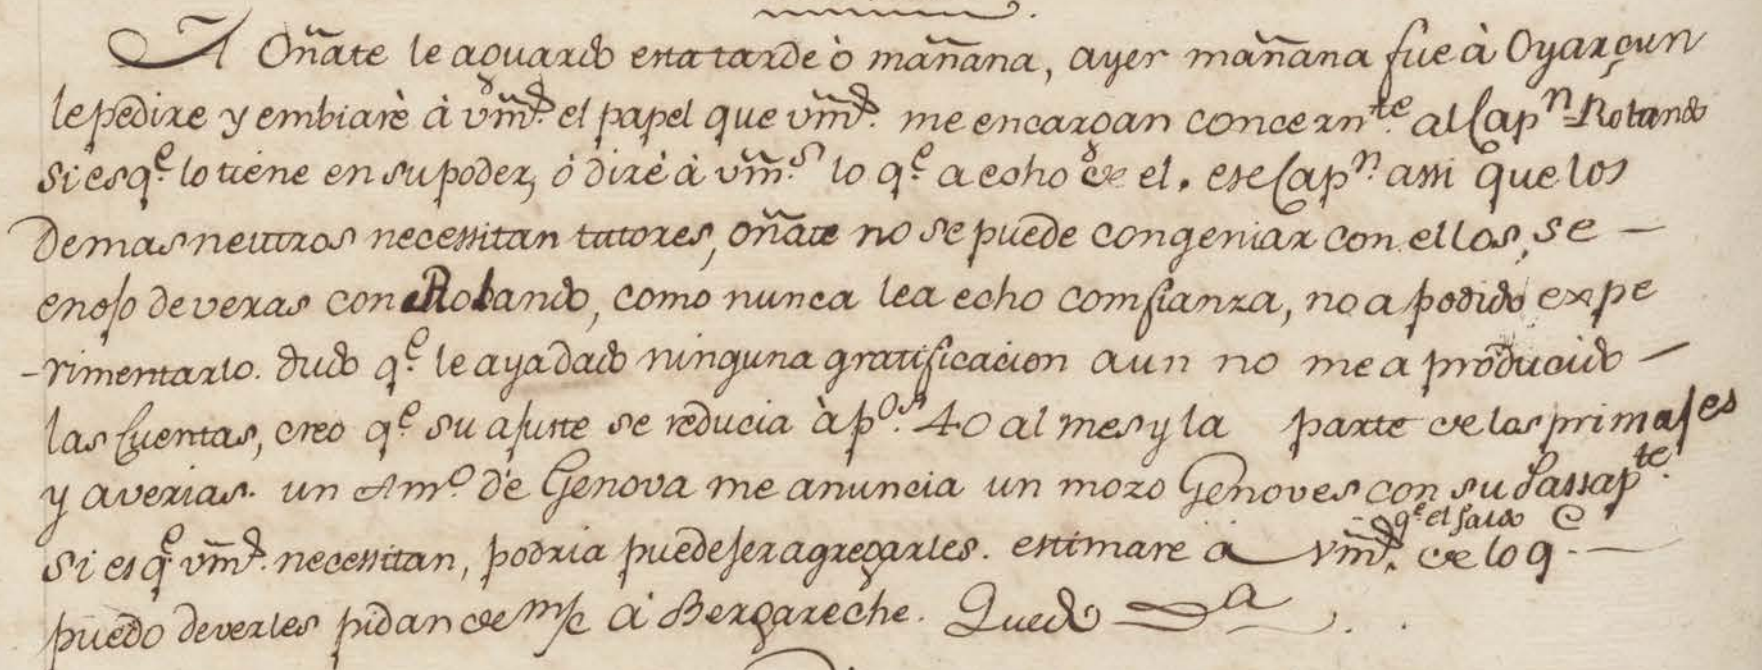 A Oñate le aguardo esta tarde ò mañana, ayer mañana fue à Oyarçun
le pedire y embiarè à Vm̃d. el papel que Vm̃d. me encargan concernte. al Capn. Rolando
si es qe. lo tiene en su poder, ó diré à Vm̃s lo qe. a echo de el. ese Capn. assi que los
demas neutros necessitan tutores, oñate no se puede congeniar con ellos, se —
enojo de veras con Rolando, como nunca lea echo comfianza, no a podido expe
-rimentarlo. dudo qe. le aya dado ninguna gratificacion aun no me a producido —
las Cuentas, creo qe. su ajuste se reducia à pos. 40 al mes y la parte de los primajes
y averias. un Amo. de Genova me anuncia un mozo Genoves con su Passapte.
si es qe Vm̃d. necessitan, podria puede ser agregarles. estimare a Vm̃d. qe el saldo de lo qe. —
puedo deverles pidan de m/c à Bergareche. Quedo Da.